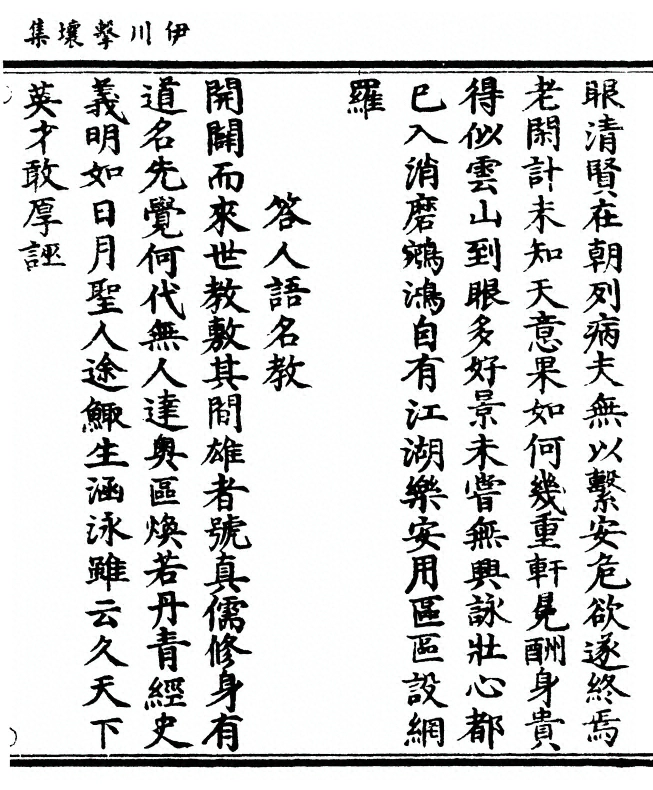 伊川擊壤集
眼清賢在朝列病夫無以繫安危欲遂終焉
老閑計未知天意果如何幾重軒冕酬身貴
得似雲山到眼多好景未嘗無興詠壯心都
已入消磨鵷鴻自有江湖樂安用區區設網
羅
答人語名教
開闢而來世教敷其間雄者號真儒修身有
道名先覺何代無人達奧區煥若丹青經史
義明如日月聖人途鯫生涵泳雖云久天下
英才敢厚誣